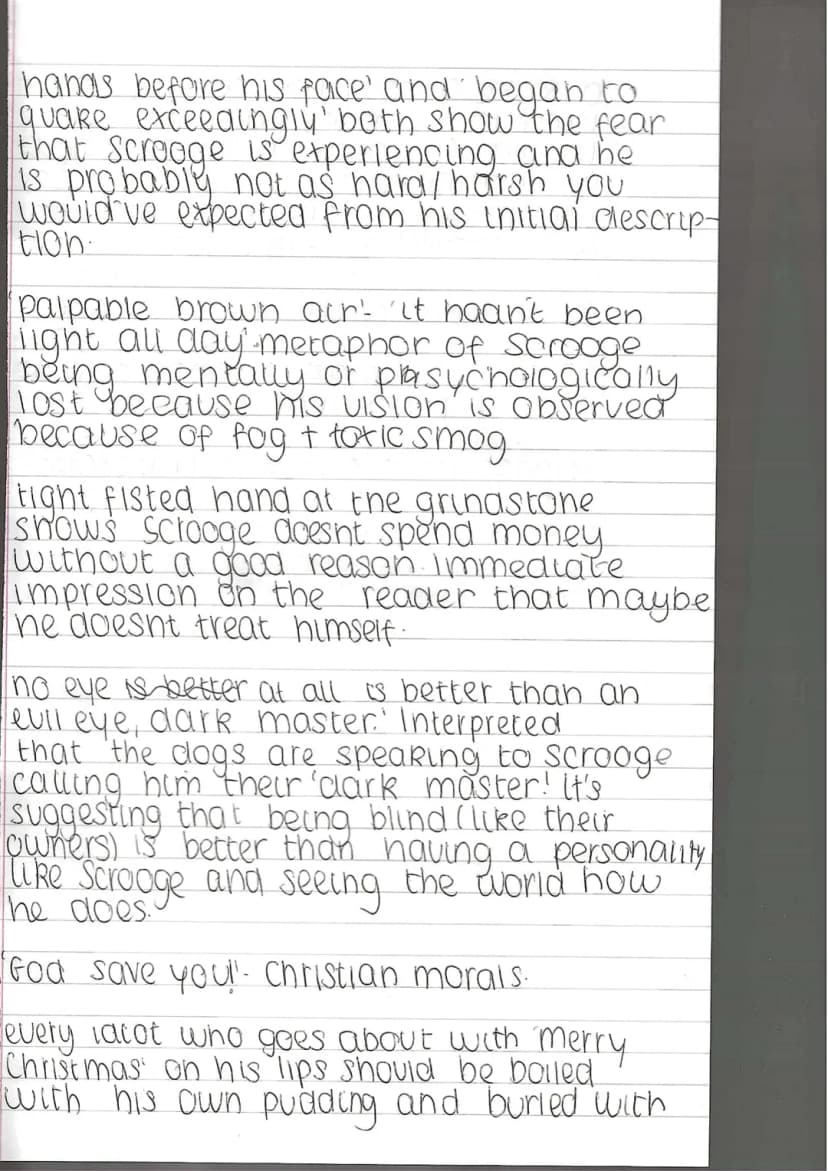 hands before his face' and 'began to
quake exceedingly' both show the fear
that scrooge is experiencing and he
is probably not as hard/harsh you
would've expected from his initial descrip-
tion.
'palpable brown air'- 'it hadn't been
light all day'-metaphor of scrooge
being mentally or psychologically
lost because his vision is observed
because of fog + toxic smog
tight fisted hand at the grindstone
shows Scrooge doesnt spend money
without a good reason. Immediate
impression on the reader that maybe
he doesnt treat himself.
no eye is better at all is better than an
evil eye, dark master.' Interpreted
that the dogs are speaking to Scrooge
calling him their 'dark master! It's
suggesting that being blind (like their
owners) is better than having a personality
like Scrooge and seeing the world how
he does.
'God save you!'- Christian morals.
every idiot who goes about with 'merry
Christmas' on his lips should be boiled
with his own pudding and buried with